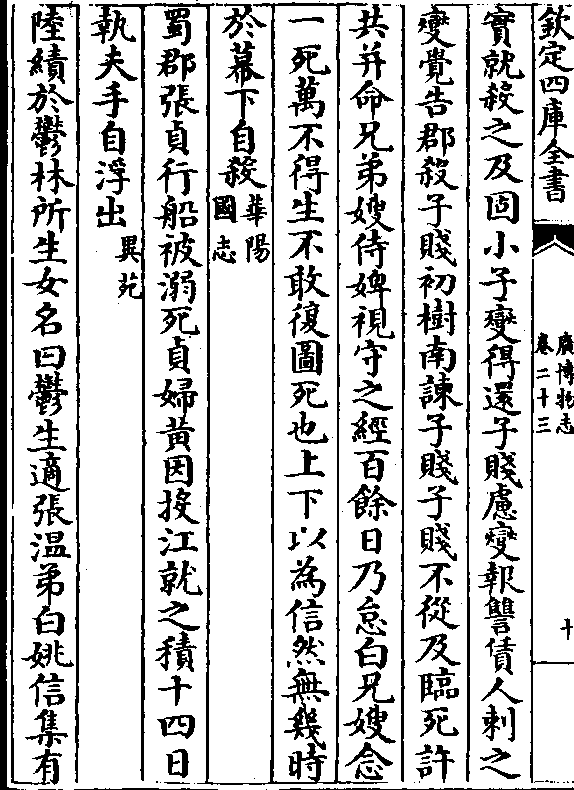 欽定四庫全書
廣博物志
卷二十三
十
實就殺之及固小子爕得還子賤慮爕報讐賃人刺之
爕覺告郡殺子賤初樹南諫子賤子賤不從及臨死許
共并命兄弟嫂侍婢視守之經百餘日乃怠白兄嫂念
一死萬不得生不敢復圖死也上下以為信然無幾時
於幕下自殺華陽國志
蜀郡張貞行船被溺死貞婦黃因投江就之積十四日
執夫手自浮出異苑
陸績於鬱林所生女名曰鬱生適張溫弟白姚信集有